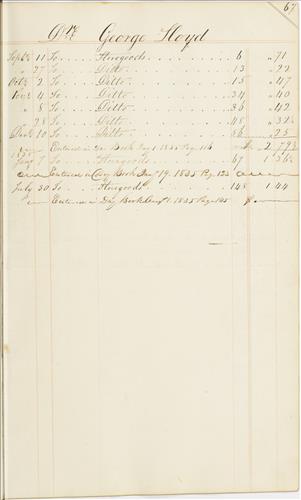 67
Dr. George Lloyd
Sept. 11 To .... Storegoods ..... 6 .71
" 27 To .... Ditto ..... 13 .22
Octr. 2 To .... Ditto ..... 15 .47
Novr. 4 To .... Ditto ..... 34 .40
" 8 To .... Ditto ..... 36 .42
" 28 To .... Ditto ..... 48 .32
Decr. 10 To .... Ditto ..... 56 .25
1835 Entered in Day Book Jany 1 1835 Page 116 2.79
Jany 7 To .... Storegoods .... 67 1.36
Entered in Day Book Jany 19. 1835 Pg. 123
July 30 To .... Storegoods .... 148 1 44
Entered in Day Book Augt 1. 1835 Page 145